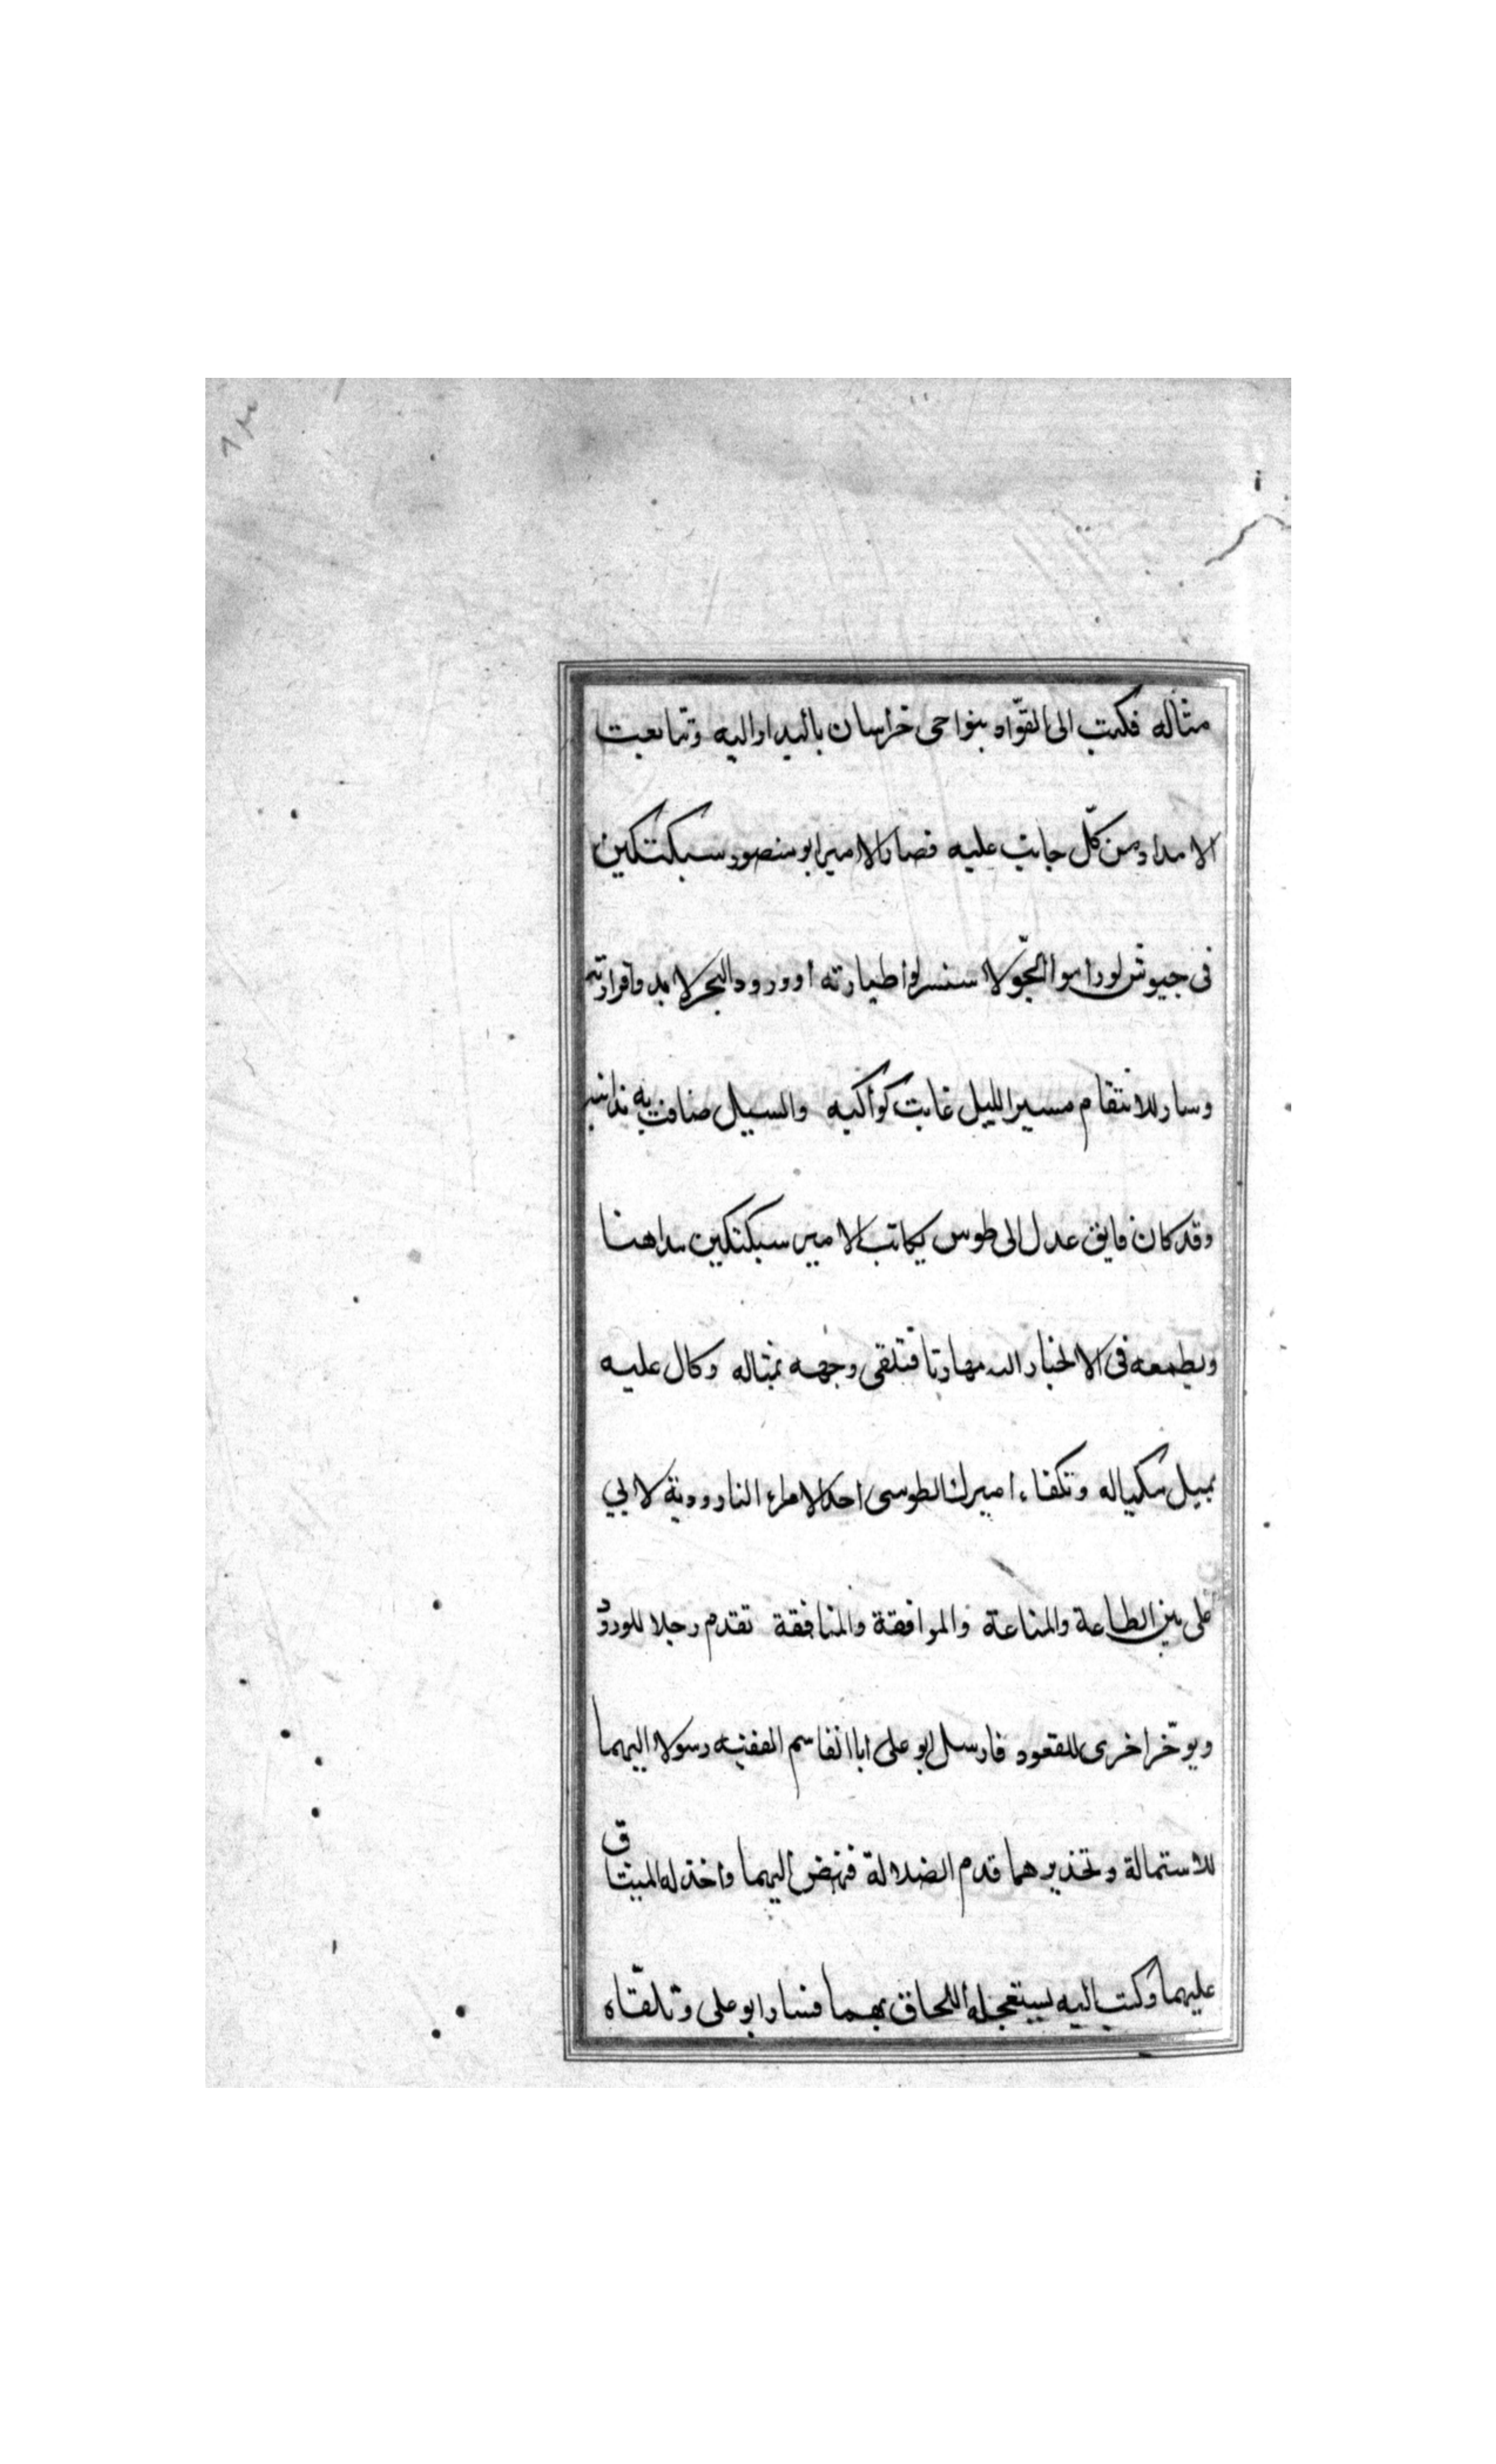 مثاله فكتب الى القوّاد بنواحى خراسان بالبدار اليه وتتابعت
الامداد من كلّ جانب عليه فصار الامير ابو منصور سبكتكين
فى جيوش لو راموا الجوّ لا طيارته او ورود البحر لا
وسار للانتقام مسير الليل غابت كواكبه والسيل ضاقت به
وقد كان فايق عدل الى طوس يكاتب الامير سبكتكين مداهنا
ويطمعه فى الانحياز اليه مهادنا فتلقى وجهه بمثاله وكال عليه
بمثيل مكياله وتكفاء اميرك الطوسى احد الامراء لابي
على بين الطاعة والمناعة والموافقة والمنافقة تقدم رجلا للورود
ويوخّر اخرى للقعود فارسل ابو على ابا القاسم الفقيه رسولا اليهما
للاستمالة وتحذيرهما قدم الضلالة فنهض اليهما واخذ له الميثاق
عليهما وكتب اليه يستعجله اللحاق بهما فسار ابو على وتلقّاه